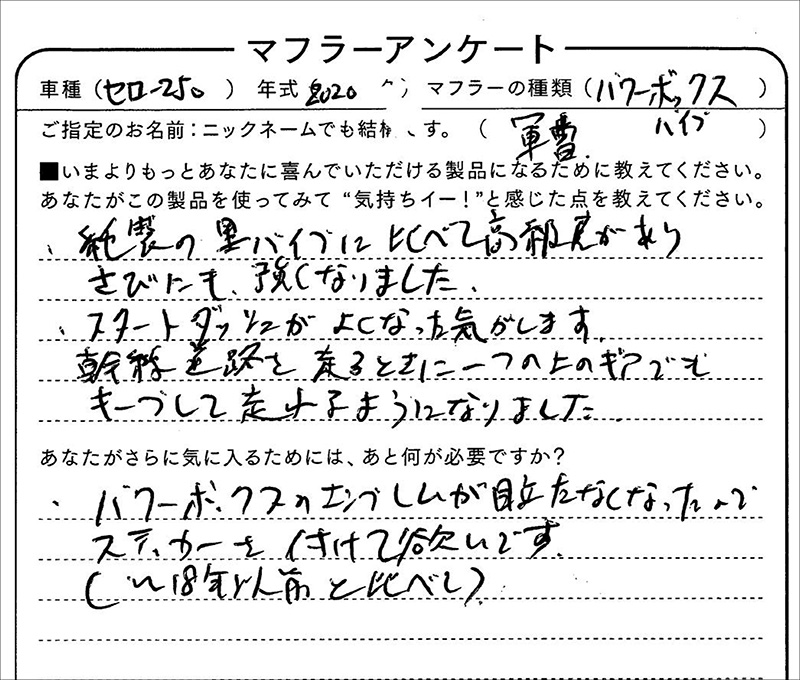 マフラーアンケート
車種（セロー250 ）年式 2020 ） マフラーの種類（パワーボックス ）
パイプ
ご指定のお名前：ニックネームでも結構 す。（ 軍曹. ）
■いまよりもっとあなたに喜んでいただける製品になるために教えてください。
あなたがこの製品を使ってみて“気持ちイー！”と感じた点を教えてください。
、純製の黒パイプに比べて高級感があり
さびにも、強くなりました.
、スタートダッシュがよくなった気がします.
幹線道路を走るときに一つの上のギアでも
キープして走れるようになりました.
あなたがさらに気に入るためには、あと何が必要ですか？
、パワーボックスのエンブレムが目立たなくなったので
ステッカーを付けて欲いです.
18年以前と比べ